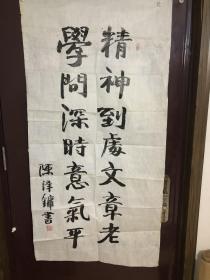 精神到處文章老
學問深時意氣平
陳泽鏞書